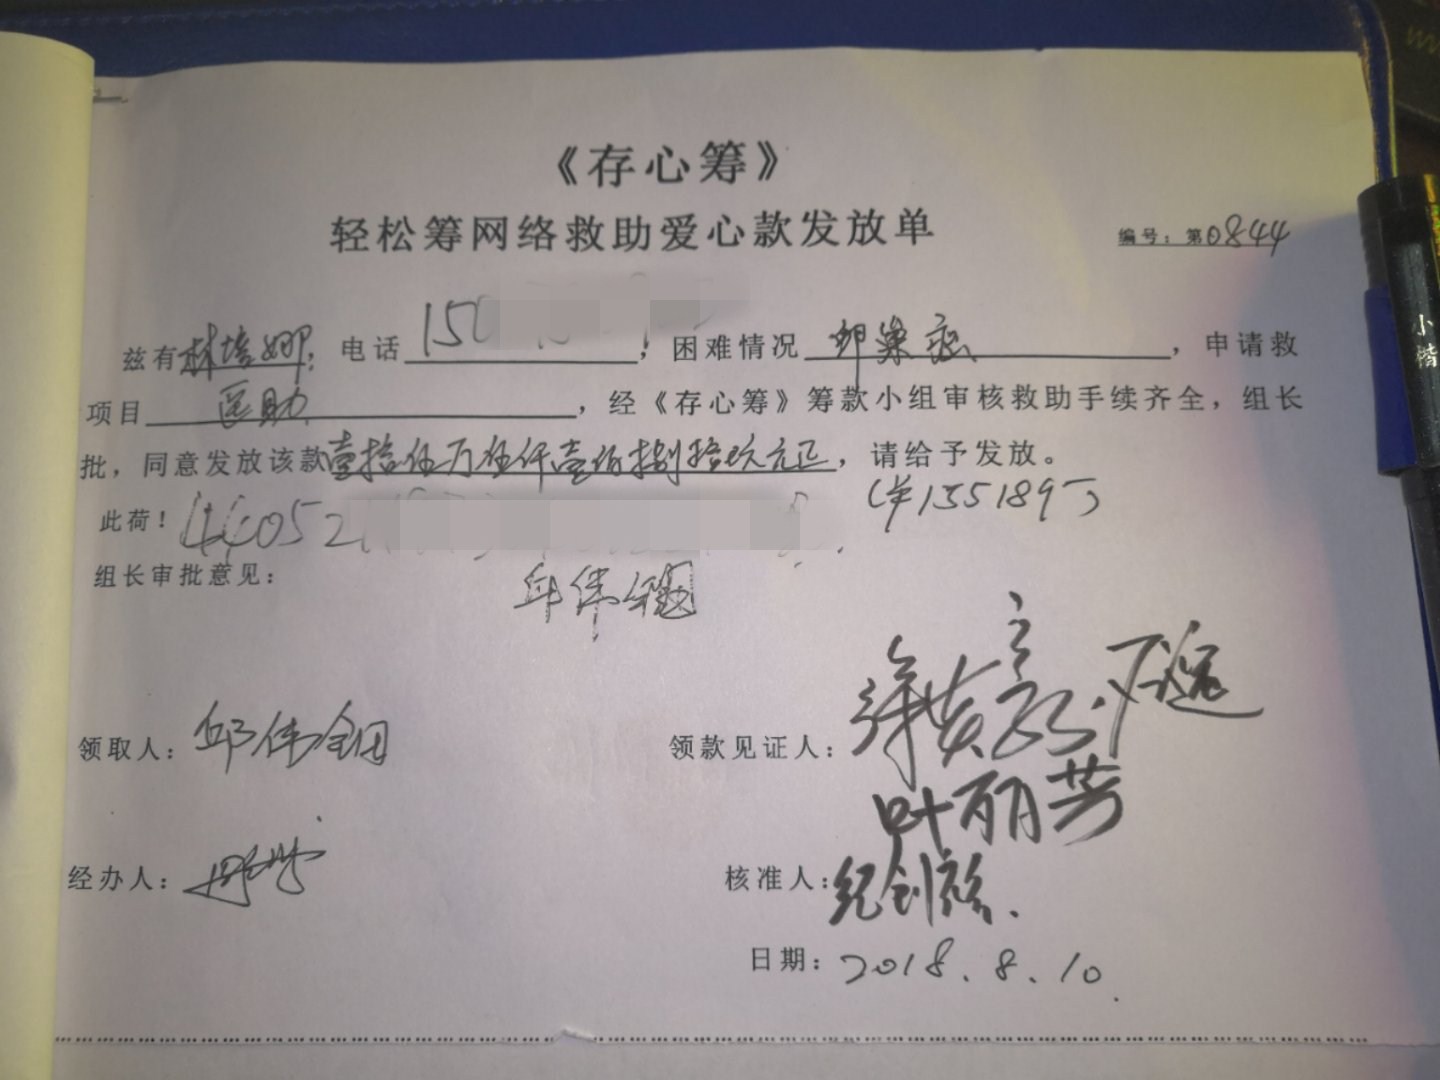 《存心筹》
轻松筹网络救助爱心款发放单
编号：第0844
兹有林培娜，电话150，困难情况卵巢癌，申请救
项目医助，经《存心筹》筹款小组审核救助手续齐全，组长
批，同意发放该款壹拾伍万伍仟壹佰捌拾玖元正，请给予发放。
此荷！44052 （¥155189）
组长审批意见：
邱伟钿
领取人：邱伟钿 领款见证人：
叶丽芳
经办人： 核准人：纪创
日期：2018.8.10
小楷